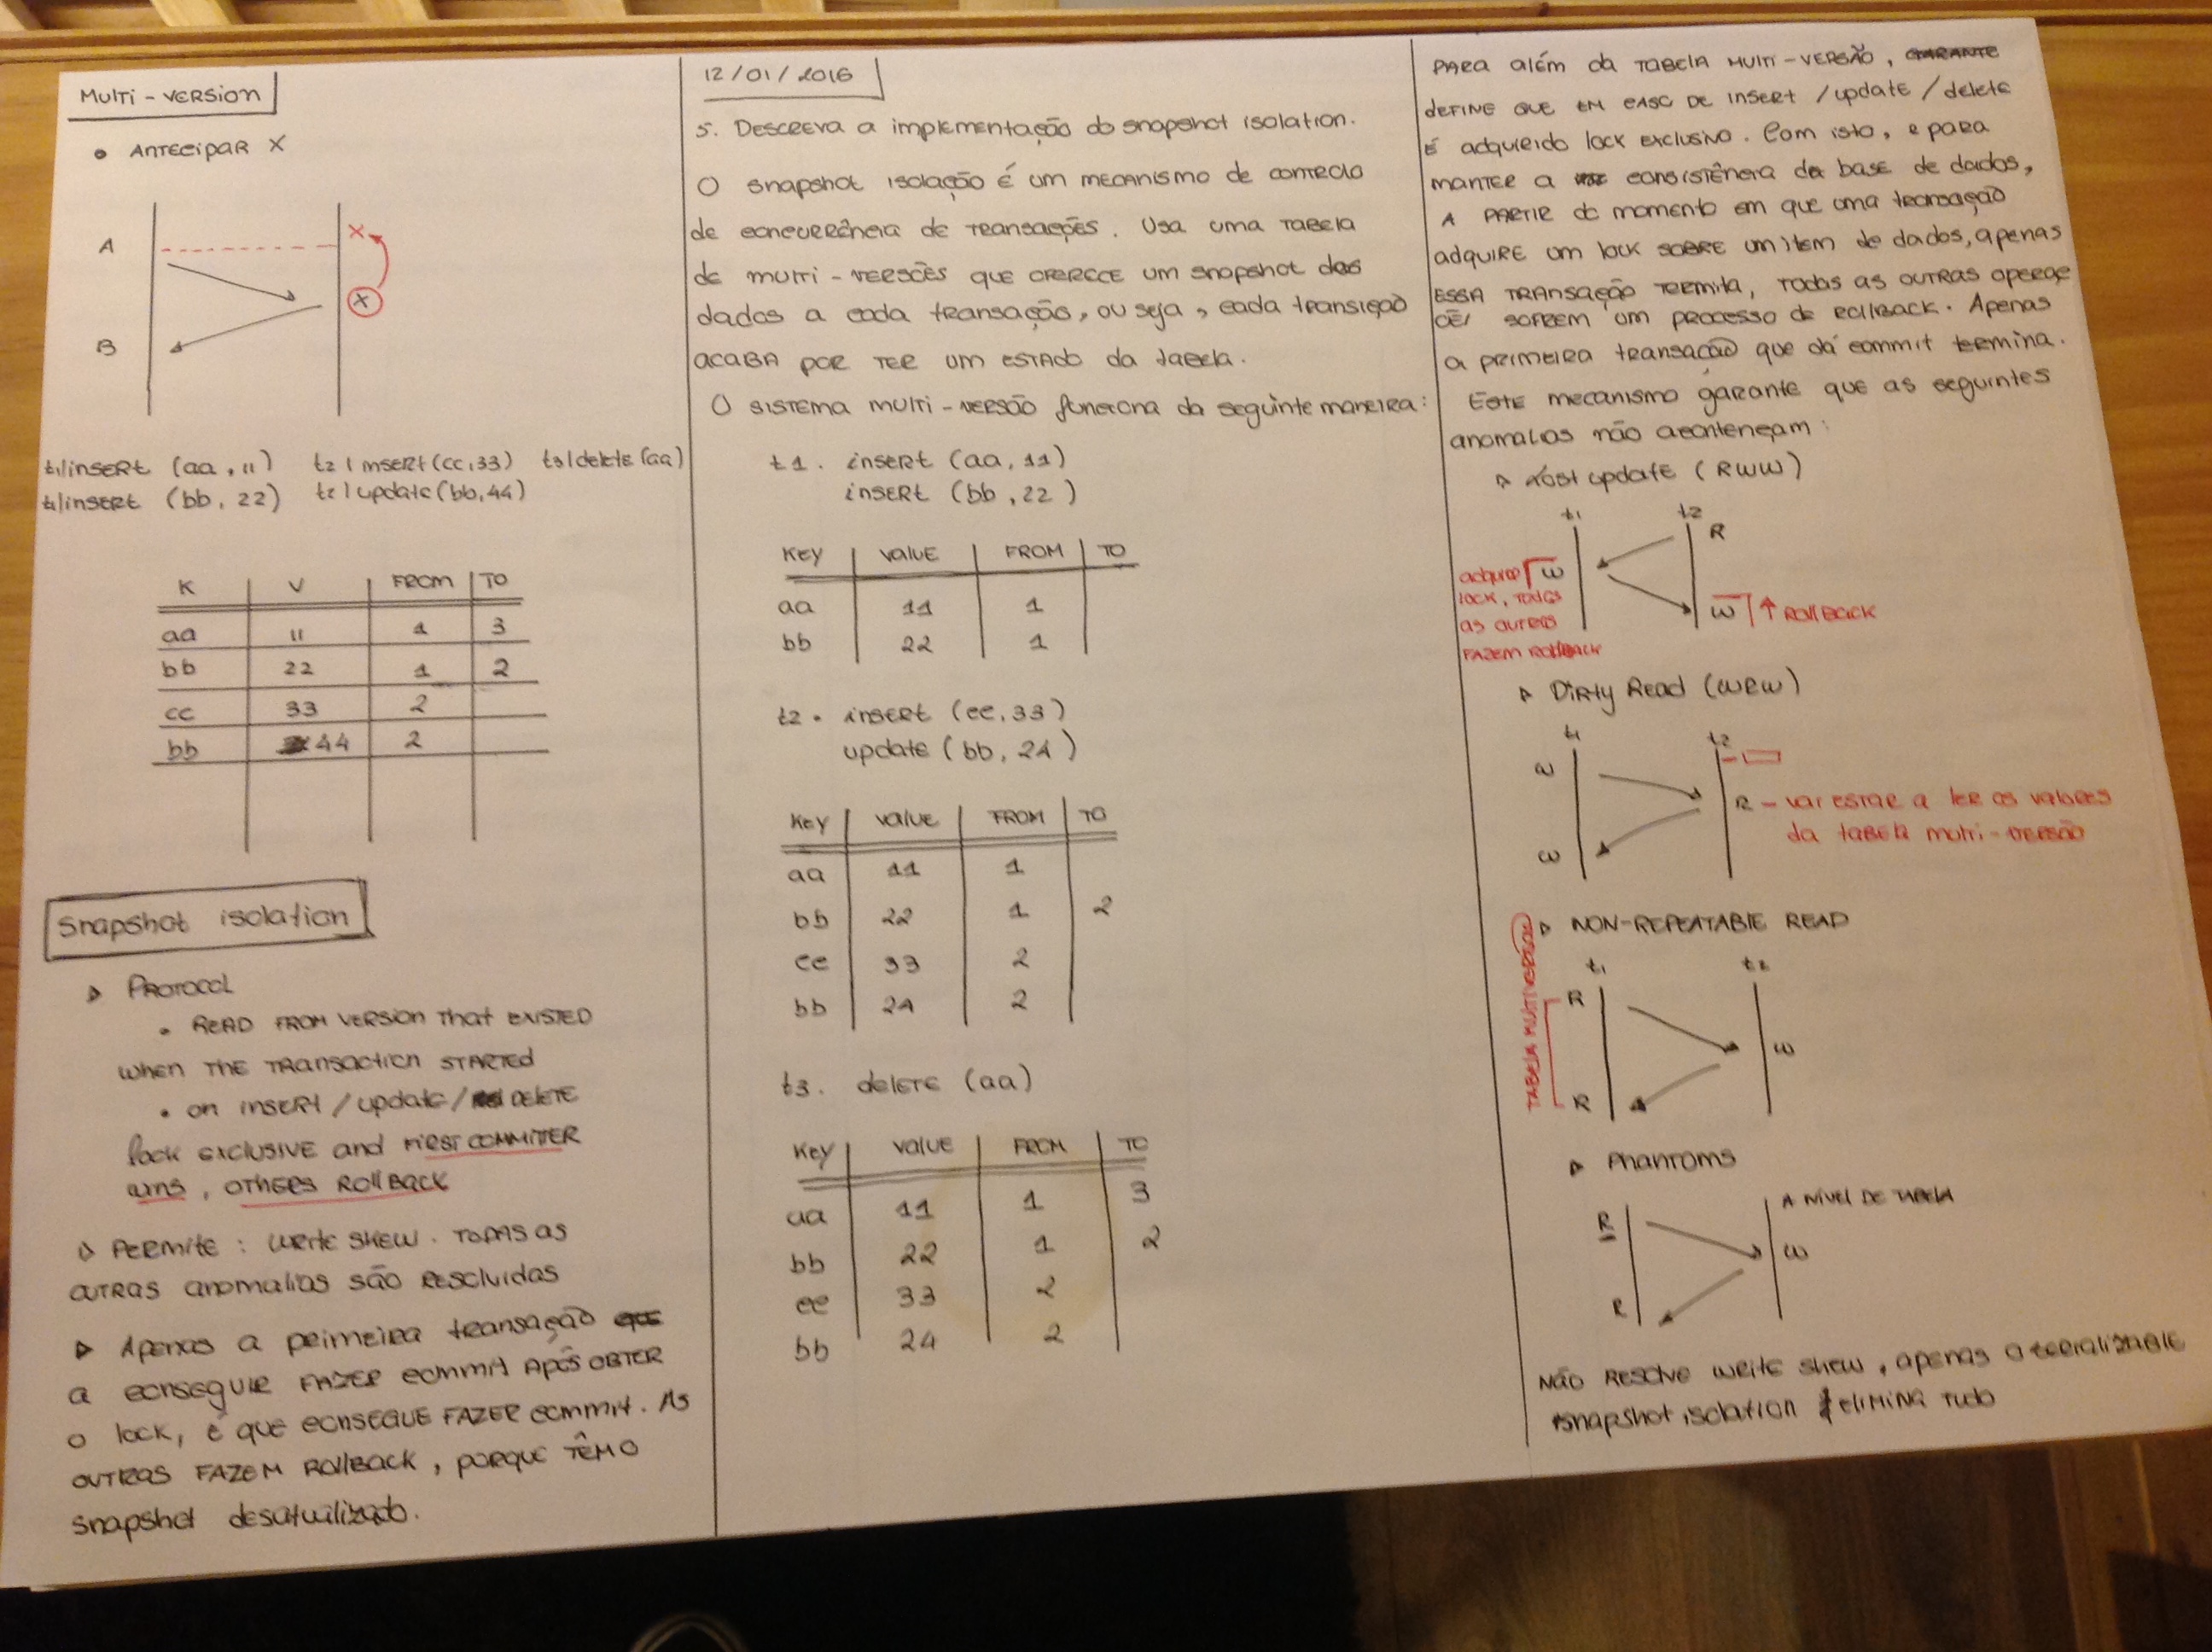 MULTI-VERSION
• ANTECIPAR X
A
X
X
B
t1|INSERT (aa, 11) t2 | INSERT (cc, 33) t3|delete (aa)
t1|INSERT (bb, 22) t2 | update (bb, 44)
K V FROM TO
aa 11 1 3
bb 22 1 2
cc 33 2
bb 44 2
Snapshot isolation
▷ PROTOCOL
• READ FROM VERSION That EXISTED
WHEN THE TRANSACTION STARTED
• on INSERT / update / DELETE
lock EXCLUSIVE and FIRST COMMITER
WINS, OTHERS ROLLBACK
▷ PERMITE : WRITE SKEW. TODAS AS
OUTRAS anomalias são RESOLVIDAS
▷ Apenas a primeira transação que
a conseguir FAZER commit APÓS OBTER
o lock, é que CONSEGUE FAZER commit. As
OUTRAS FAZEM ROLLBACK, porque TÊM O
snapshot desatualizado.
12/01/2016
5. Descreva a implementação do snapshot isolation.
O snapshot isolação é um mecanismo de controlo
de concurrência de transacções. Usa uma tabela
de multi-versões que oferece um snapshot dos
dados a cada transação, ou seja, cada transição
acaba por ter um estado da tabela.
O sistema multi-versão funciona da seguinte maneira:
t1. insert (aa, 11)
insert (bb, 22)
Key VALUE FROM TO
aa 11 1
bb 22 1
t2. insert (cc, 33)
update (bb, 24)
Key VALUE FROM TO
aa 11 1
bb 22 1 2
cc 33 2
bb 24 2
t3. delete (aa)
Key VALUE FROM TO
aa 11 1 3
bb 22 1 2
cc 33 2
bb 24 2
Para além da tabela multi-versão, GARANTE
define que em caso de insert / update / delete
é adquirido lock exclusivo. Com isto, e para
manter a consistência da base de dados,
a partir do momento em que uma transação
adquire um lock sobre um item de dados, apenas
essa transação termita, todas as outras opera
ções sofrem um processo de rollback. Apenas
a primeira transação que dá commit termina.
Este mecanismo garante que as seguintes
anomalias não aconteneçam:
▷ Lost update (RWW)
t1 t2
R
W
adquire
lock, todas
as outras
fazem rollback
W ↑ ROLLBACK
▷ Dirty Read (WRW)
t1 t2
W
R – vai estar a ler os valores
da tabela multi-versão
W
▷ NON-REPEATABLE READ
t1 t2
TABELA MULTIVERSÃO
R
W
R
▷ Phantoms
A NÍVEL DE TABELA
R
W
R
NÃO RESOLVE write skew, apenas o serializable
snapshot isolation ELIMINA TUDO